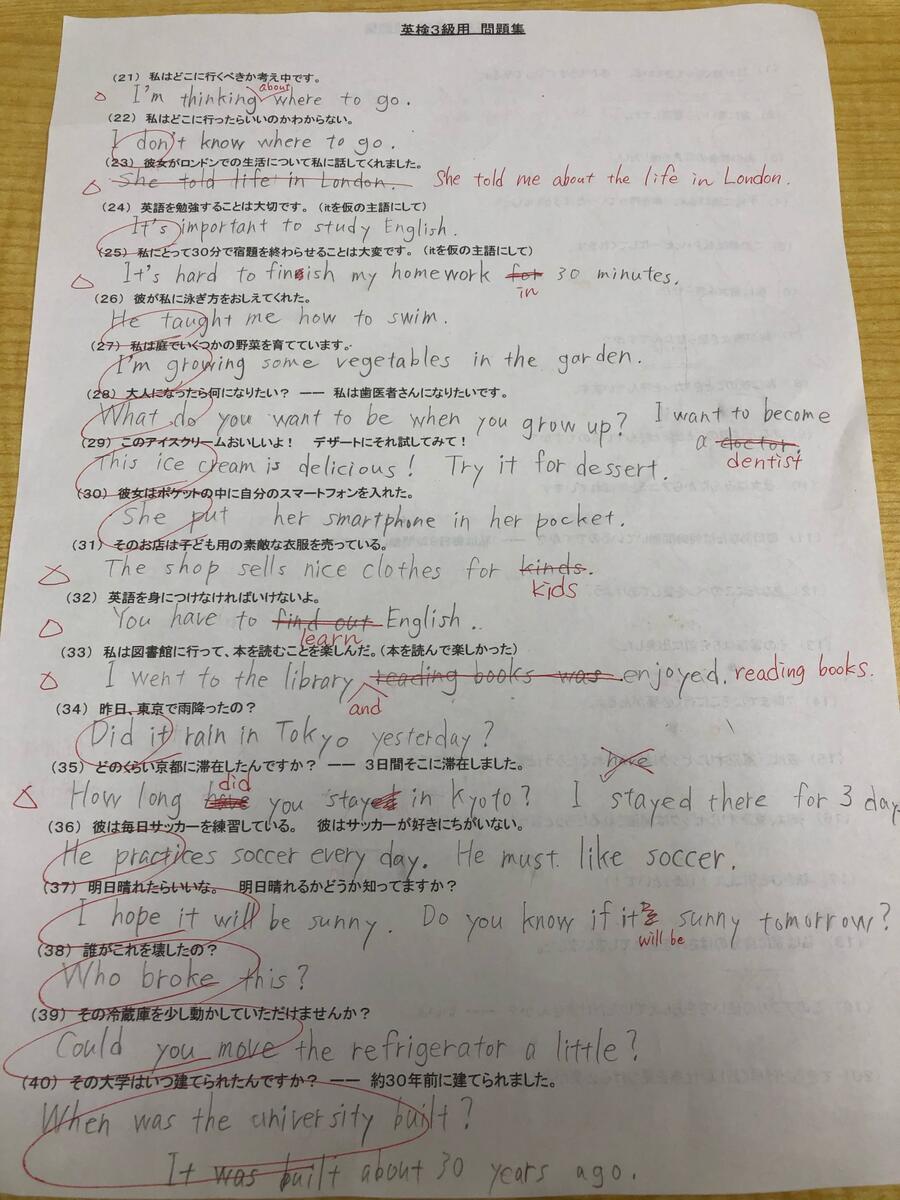 英検3級用 問題集
(21) 私はどこに行くべきか考え中です。
about
I'm thinking where to go.
(22) 私はどこに行ったらいいのかわからない。
I don't know where to go.
(23) 彼女がロンドンでの生活について私に話してくれました。
She told life in London. She told me about the life in London.
(24) 英語を勉強することは大切です。(itを仮の主語にして)
It's important to study English.
(25) 私にとって30分で宿題を終わらせることは大変です。(itを仮の主語にして)
It's hard to finish my homework for 30 minutes.
in
(26) 彼が私に泳ぎ方をおしえてくれた。
He taught me how to swim.
(27) 私は庭でいくつかの野菜を育てています。
I'm growing some vegetables in the garden.
(28) 大人になったら何になりたい? ―― 私は歯医者さんになりたいです。
What do you want to be when you grow up? I want to become
a doctor.
dentist
(29) このアイスクリームおいしいよ! デザートにそれ試してみて!
This ice cream is delicious! Try it for dessert.
(30) 彼女はポケットの中に自分のスマートフォンを入れた。
She put her smartphone in her pocket.
(31) そのお店は子ども用の素敵な衣服を売っている。
The shop sells nice clothes for kinds.
kids
(32) 英語を身につけなければいけないよ。
You have to find out English.
learn
(33) 私は図書館に行って、本を読むことを楽しんだ。(本を読んで楽しかった)
I went to the library reading books was enjoyed. reading books.
and
(34) 昨日、東京で雨降ったの?
Did it rain in Tokyo yesterday?
(35) どのくらい京都に滞在したんですか? ―― 3日間そこに滞在しました。
did have
How long have you stayed in Kyoto? I stayed there for 3 day
(36) 彼は毎日サッカーを練習している。 彼はサッカーが好きにちがいない。
He practices soccer every day. He must like soccer.
(37) 明日晴れたらいいな。 明日晴れるかどうか知ってますか?
I hope it will be sunny. Do you know if it's sunny tomorrow?
will be
(38) 誰がこれを壊したの?
Who broke this?
(39) その冷蔵庫を少し動かしていただけませんか?
Could you move the refrigerator a little?
(40) その大学はいつ建てられたんですか? ―― 約30年前に建てられました。
When was the university built?
It was built about 30 years ago.